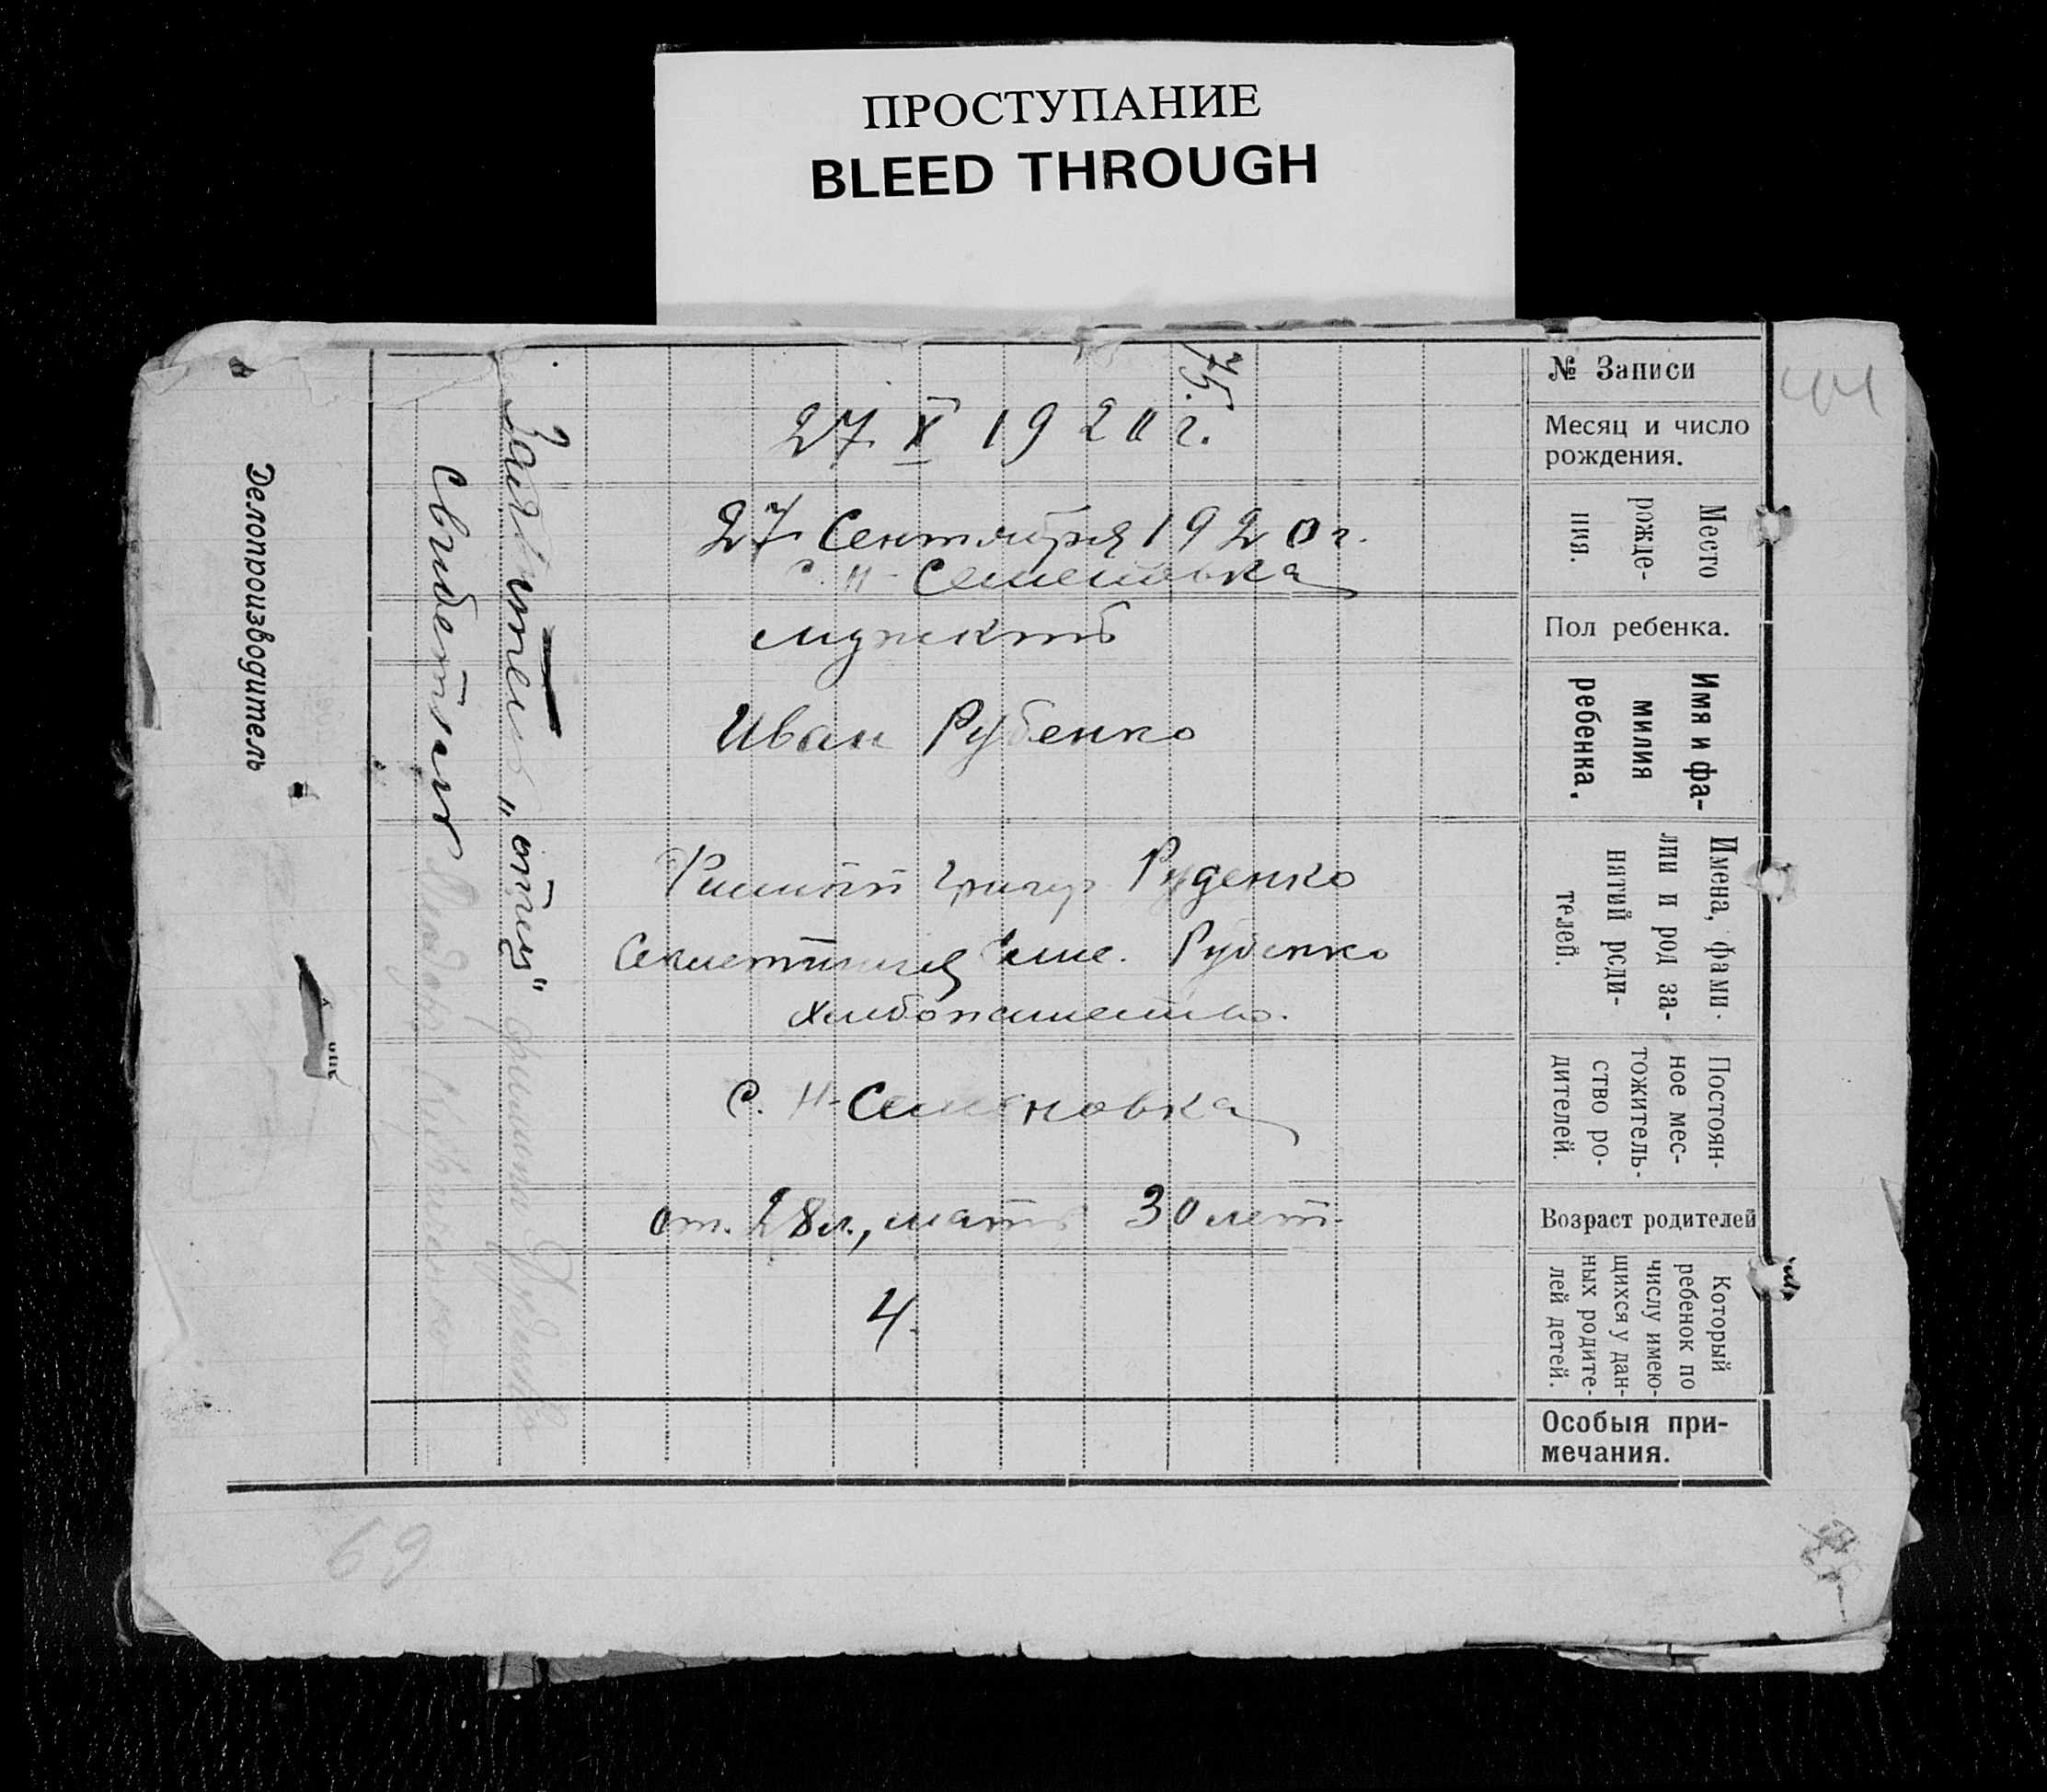 ПРОСТУПАНИЕ
BLEED THROUGH
№ Записи
75.
Месяц и число
рождения.
27 X 1920 г.
Место
рожде-
ния.
27 Сентября 1920 г.
с. Н-Семеновка
Пол ребенка.
Имя и фа-
милия
ребенка.
Иван Руденко
Имена, фами-
лии и род за-
нятий роди-
телей.
Филипп Григор Руденко
Руденко
хлебопашество.
Постоян-
ное мес-
тожитель-
ство ро-
дителей.
С. Н-Семеновка
Возраст родителей
от. 28 л., мать 30 лет.
Который
ребенок по
числу имею-
щихся у дан-
ных родите-
лей детей.
4.
Особыя при-
мечания.
Заявитель „отец" Филипп Руденко
Свидетели
Делопроизводитель
69